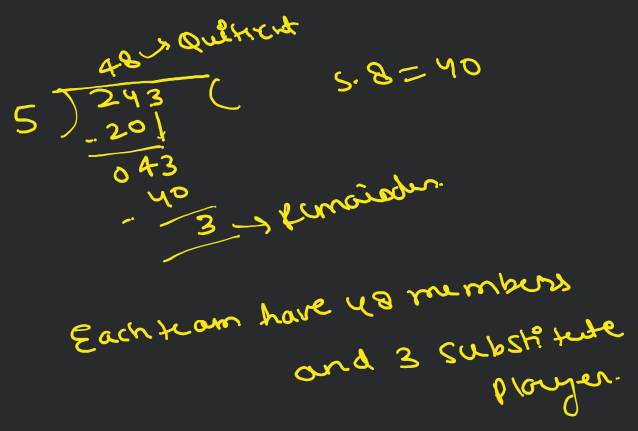 48 → Quitient
5 ) 243 (
5. 8 = 40
- 20↓
043
- 40
3 → Remaiader.
Each team have 48 members
and 3 substitute
Player.